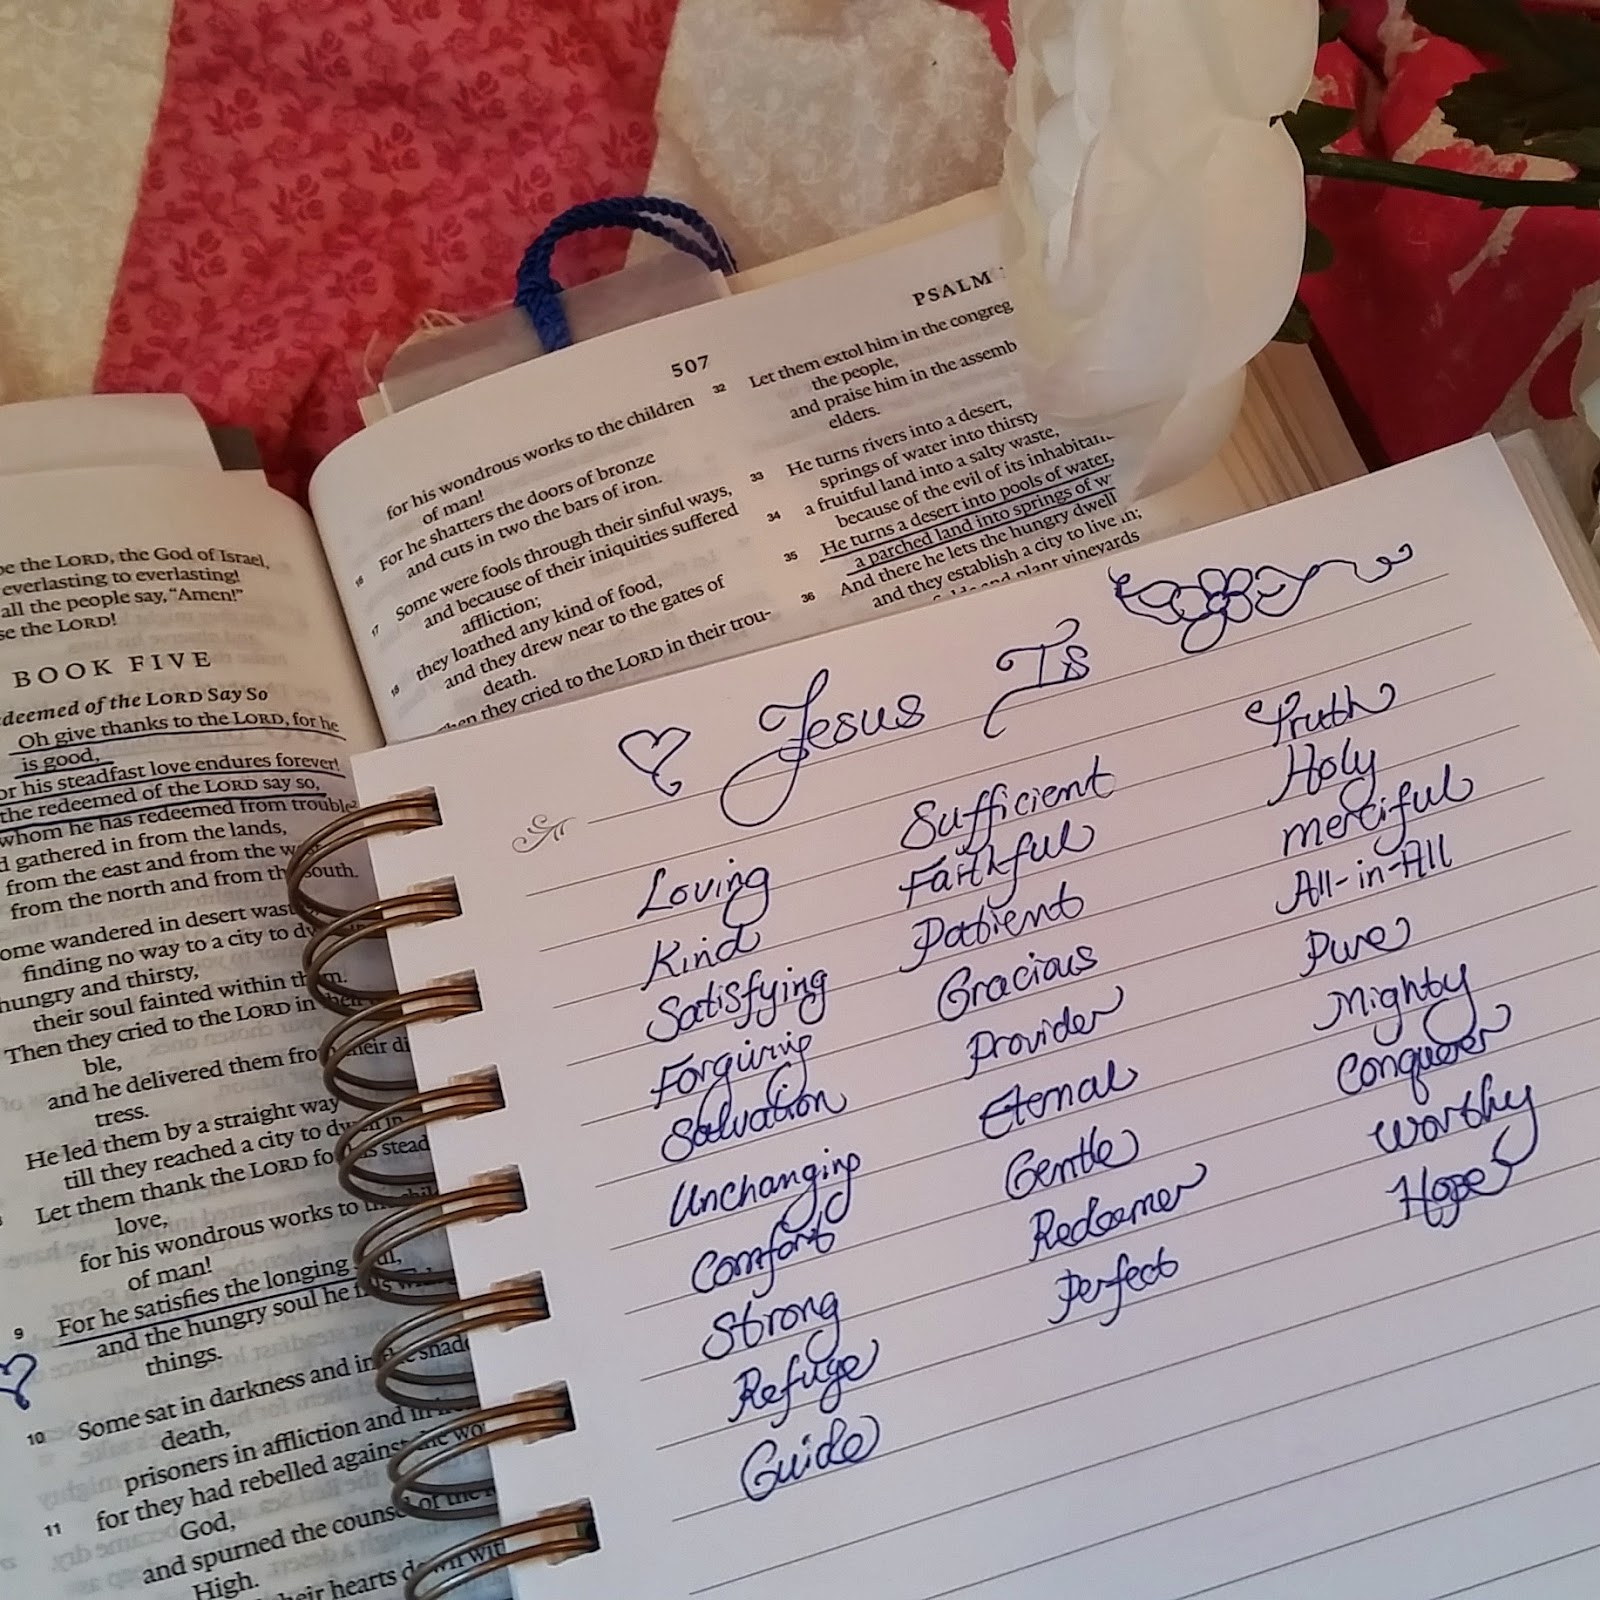 be the LORD, the God of Israel,
everlasting to everlasting!
all the people say, “Amen!”
se the LORD!
BOOK FIVE
deemed of the LORD Say So
Oh give thanks to the LORD, for he
is good,
or his steadfast love endures forever!
the redeemed of the LORD say so,
whom he has redeemed from trouble
d gathered in from the lands,
from the east and from the
from the north and from the south.
ome wandered in desert
finding no way to a city to
hungry and thirsty,
their soul fainted within them.
Then they cried to the LORD in their
ble,
and he delivered them from their
tress.
He led them by a straight way
till they reached a city to dwell in
Let them thank the LORD for his
love,
for his wondrous works to
of man!
9 For he satisfies the longing
and the hungry soul he
things.
10 Some sat in darkness and in the
death,
prisoners in affliction and in
11 for they had rebelled against the
God,
and spurned the counsel of the
High.
their hearts down
507
for his wondrous works to the children
of man!
16 For he shatters the doors of bronze
and cuts in two the bars of iron.
17 Some were fools through their sinful ways,
and because of their iniquities suffered
affliction;
18 they loathed any kind of food,
and they drew near to the gates of
death.
then they cried to the LORD in their trou-
PSALM
32 Let them extol him in the congreg
the people,
and praise him in the assemb
elders.
33 He turns rivers into a desert,
springs of water into thirsty
34 a fruitful land into a salty waste,
because of the evil of its inhabitan
35 He turns a desert into pools of water,
a parched land into springs of w
36 And there he lets the hungry dwell
and they establish a city to live in;
and plant vineyards
Jesus Is
Loving
Kind
Satisfying
Forgiving
Salvation
Unchanging
Comfort
Strong
Refuge
Guide
Sufficient
Faithful
Patient
Gracious
Provider
Eternal
Gentle
Redeemer
Perfect
Truth
Holy
Merciful
All-in-All
Pure
Mighty
Conquerer
Worthy
Hope